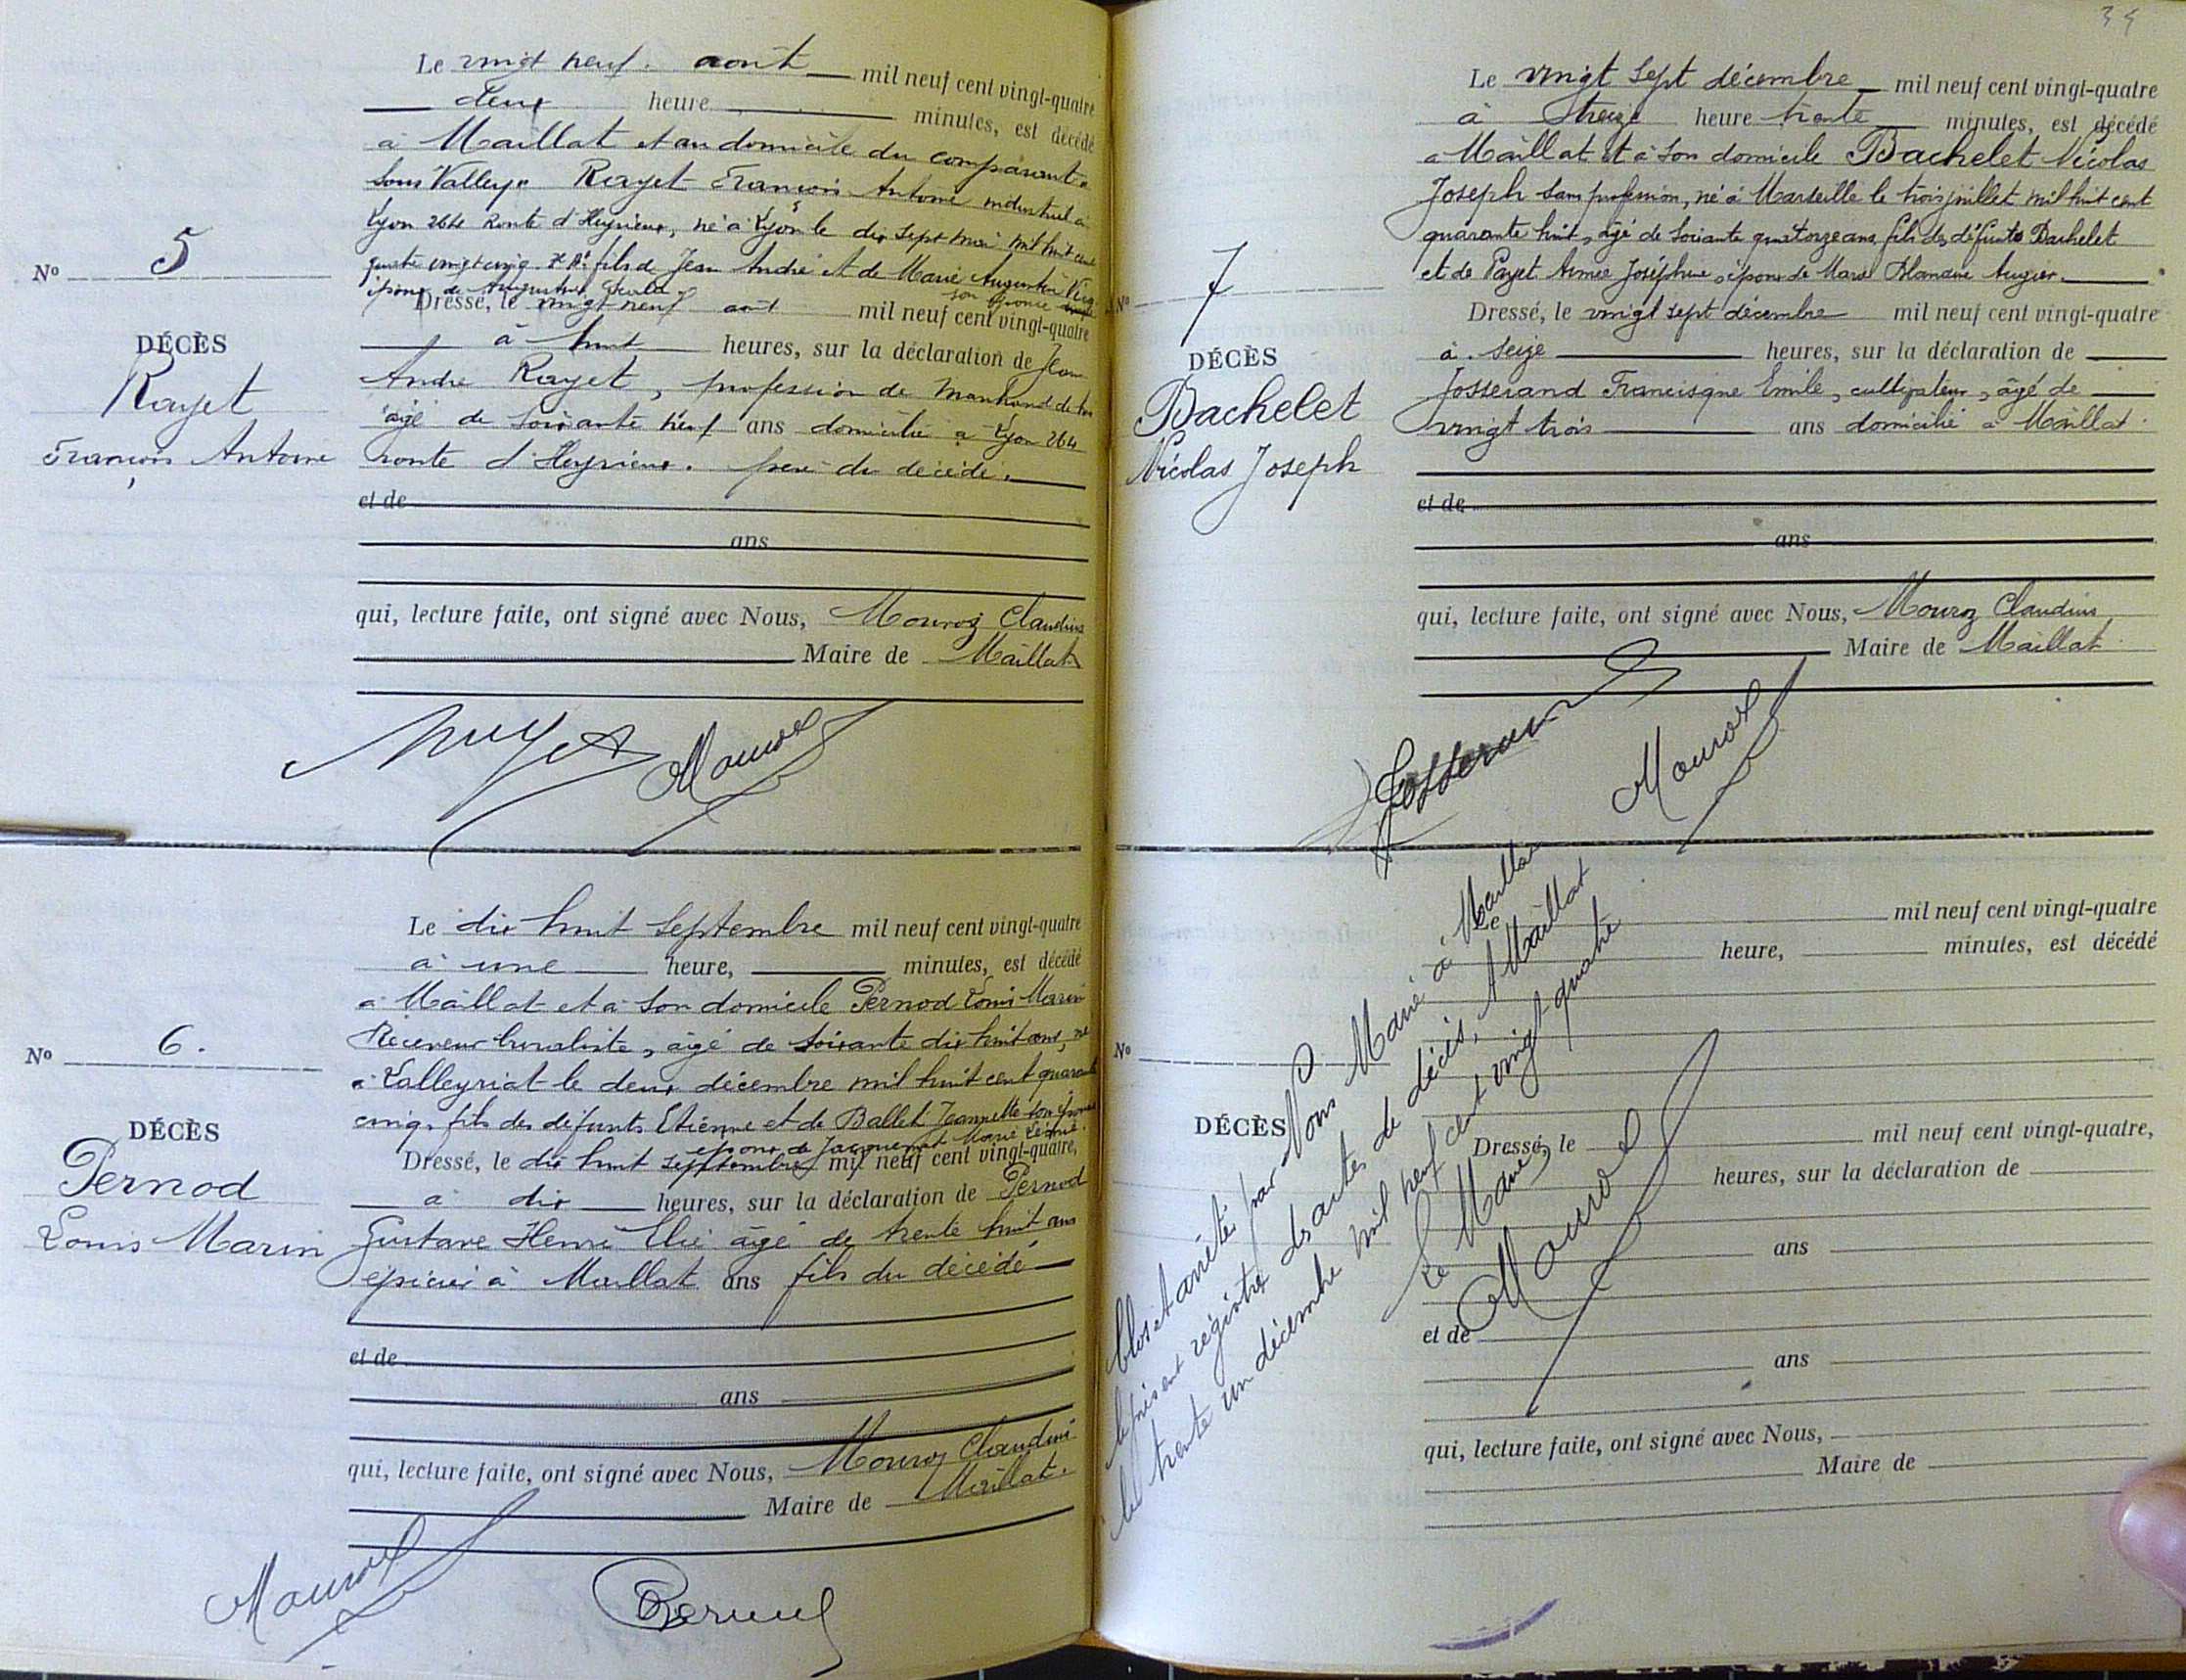 Le vingt neuf août mil neuf cent vingt-quatre
deux heure minutes, est décédé
à Maillat et au domicile du comparant à
sous Valleye Rayet François Antoine industriel à
Lyon 264 Route d'Heyrieux, né à Lyon le dix sept mai mil huit cent
quatre vingt cinq fils de Jean André et de Marie Augustin
époux de Augustine son épouse
Nº 5
DÉCÈS
Rayet
François Antoine
Dressé, le vingt neuf août mil neuf cent vingt-quatre
à huit heures, sur la déclaration de Jean
André Rayet, profession de Marchand de
âgé de soixante neuf ans domicilié à Lyon 264
route d'Heyrieux. père du décédé.
et de
ans
qui, lecture faite, ont signé avec Nous, Mouroz Claudius
Maire de Maillat
Rayet Mouroz
Le dix huit septembre mil neuf cent vingt-quatre
à une heure, minutes, est décédé
à Maillat et à son domicile Pernod Louis Marin
Receveur buraliste, âgé de soixante dix huit ans, né
à Lalleyriat le deux décembre mil huit cent quarante
cinq, fils des défunts Etienne et de Ballet Jeannette son épouse
époux de Jacquemet Marie
Nº 6.
DÉCÈS
Pernod
Louis Marin
Dressé, le dix huit septembre mil neuf cent vingt-quatre,
à dix heures, sur la déclaration de Pernod
Gustave Henri Elie âgé de trente huit ans
épicier à Maillat ans fils du décédé
et de
ans
qui, lecture faite, ont signé avec Nous, Mouroz Claudius
Maire de Maillat.
Mouroz Pernod
34
Le vingt sept décembre mil neuf cent vingt-quatre
à treize heure trente minutes, est décédé
à Maillat et à son domicile Bachelet Nicolas
Joseph sans profession, né à Marseille le trois juillet mil huit cent
quarante huit, âgé de soixante quatorze ans, fils des défunts Bachelet
et de Payet Aimée Joséphine, époux de Marie Blandine Augier.
Nº 7
DÉCÈS
Bachelet
Nicolas Joseph
Dressé, le vingt sept décembre mil neuf cent vingt-quatre
à seize heures, sur la déclaration de
Josserand Francisque Emile, cultivateur, âgé de
vingt trois ans domicilié à Maillat.
et de
ans
qui, lecture faite, ont signé avec Nous, Mouroz Claudius
Maire de Maillat
Josserand Mouroz
Le mil neuf cent vingt-quatre
heure, minutes, est décédé
Nº
DÉCÈS
Dressé, le mil neuf cent vingt-quatre,
heures, sur la déclaration de
ans
et de
ans
qui, lecture faite, ont signé avec Nous,
Maire de
Clos et arrêté par Nous Maire à Maillat
le présent registre des actes de décès, A Maillat
le trente un décembre mil neuf cent vingt quatre
Le Maire,
Mouroz